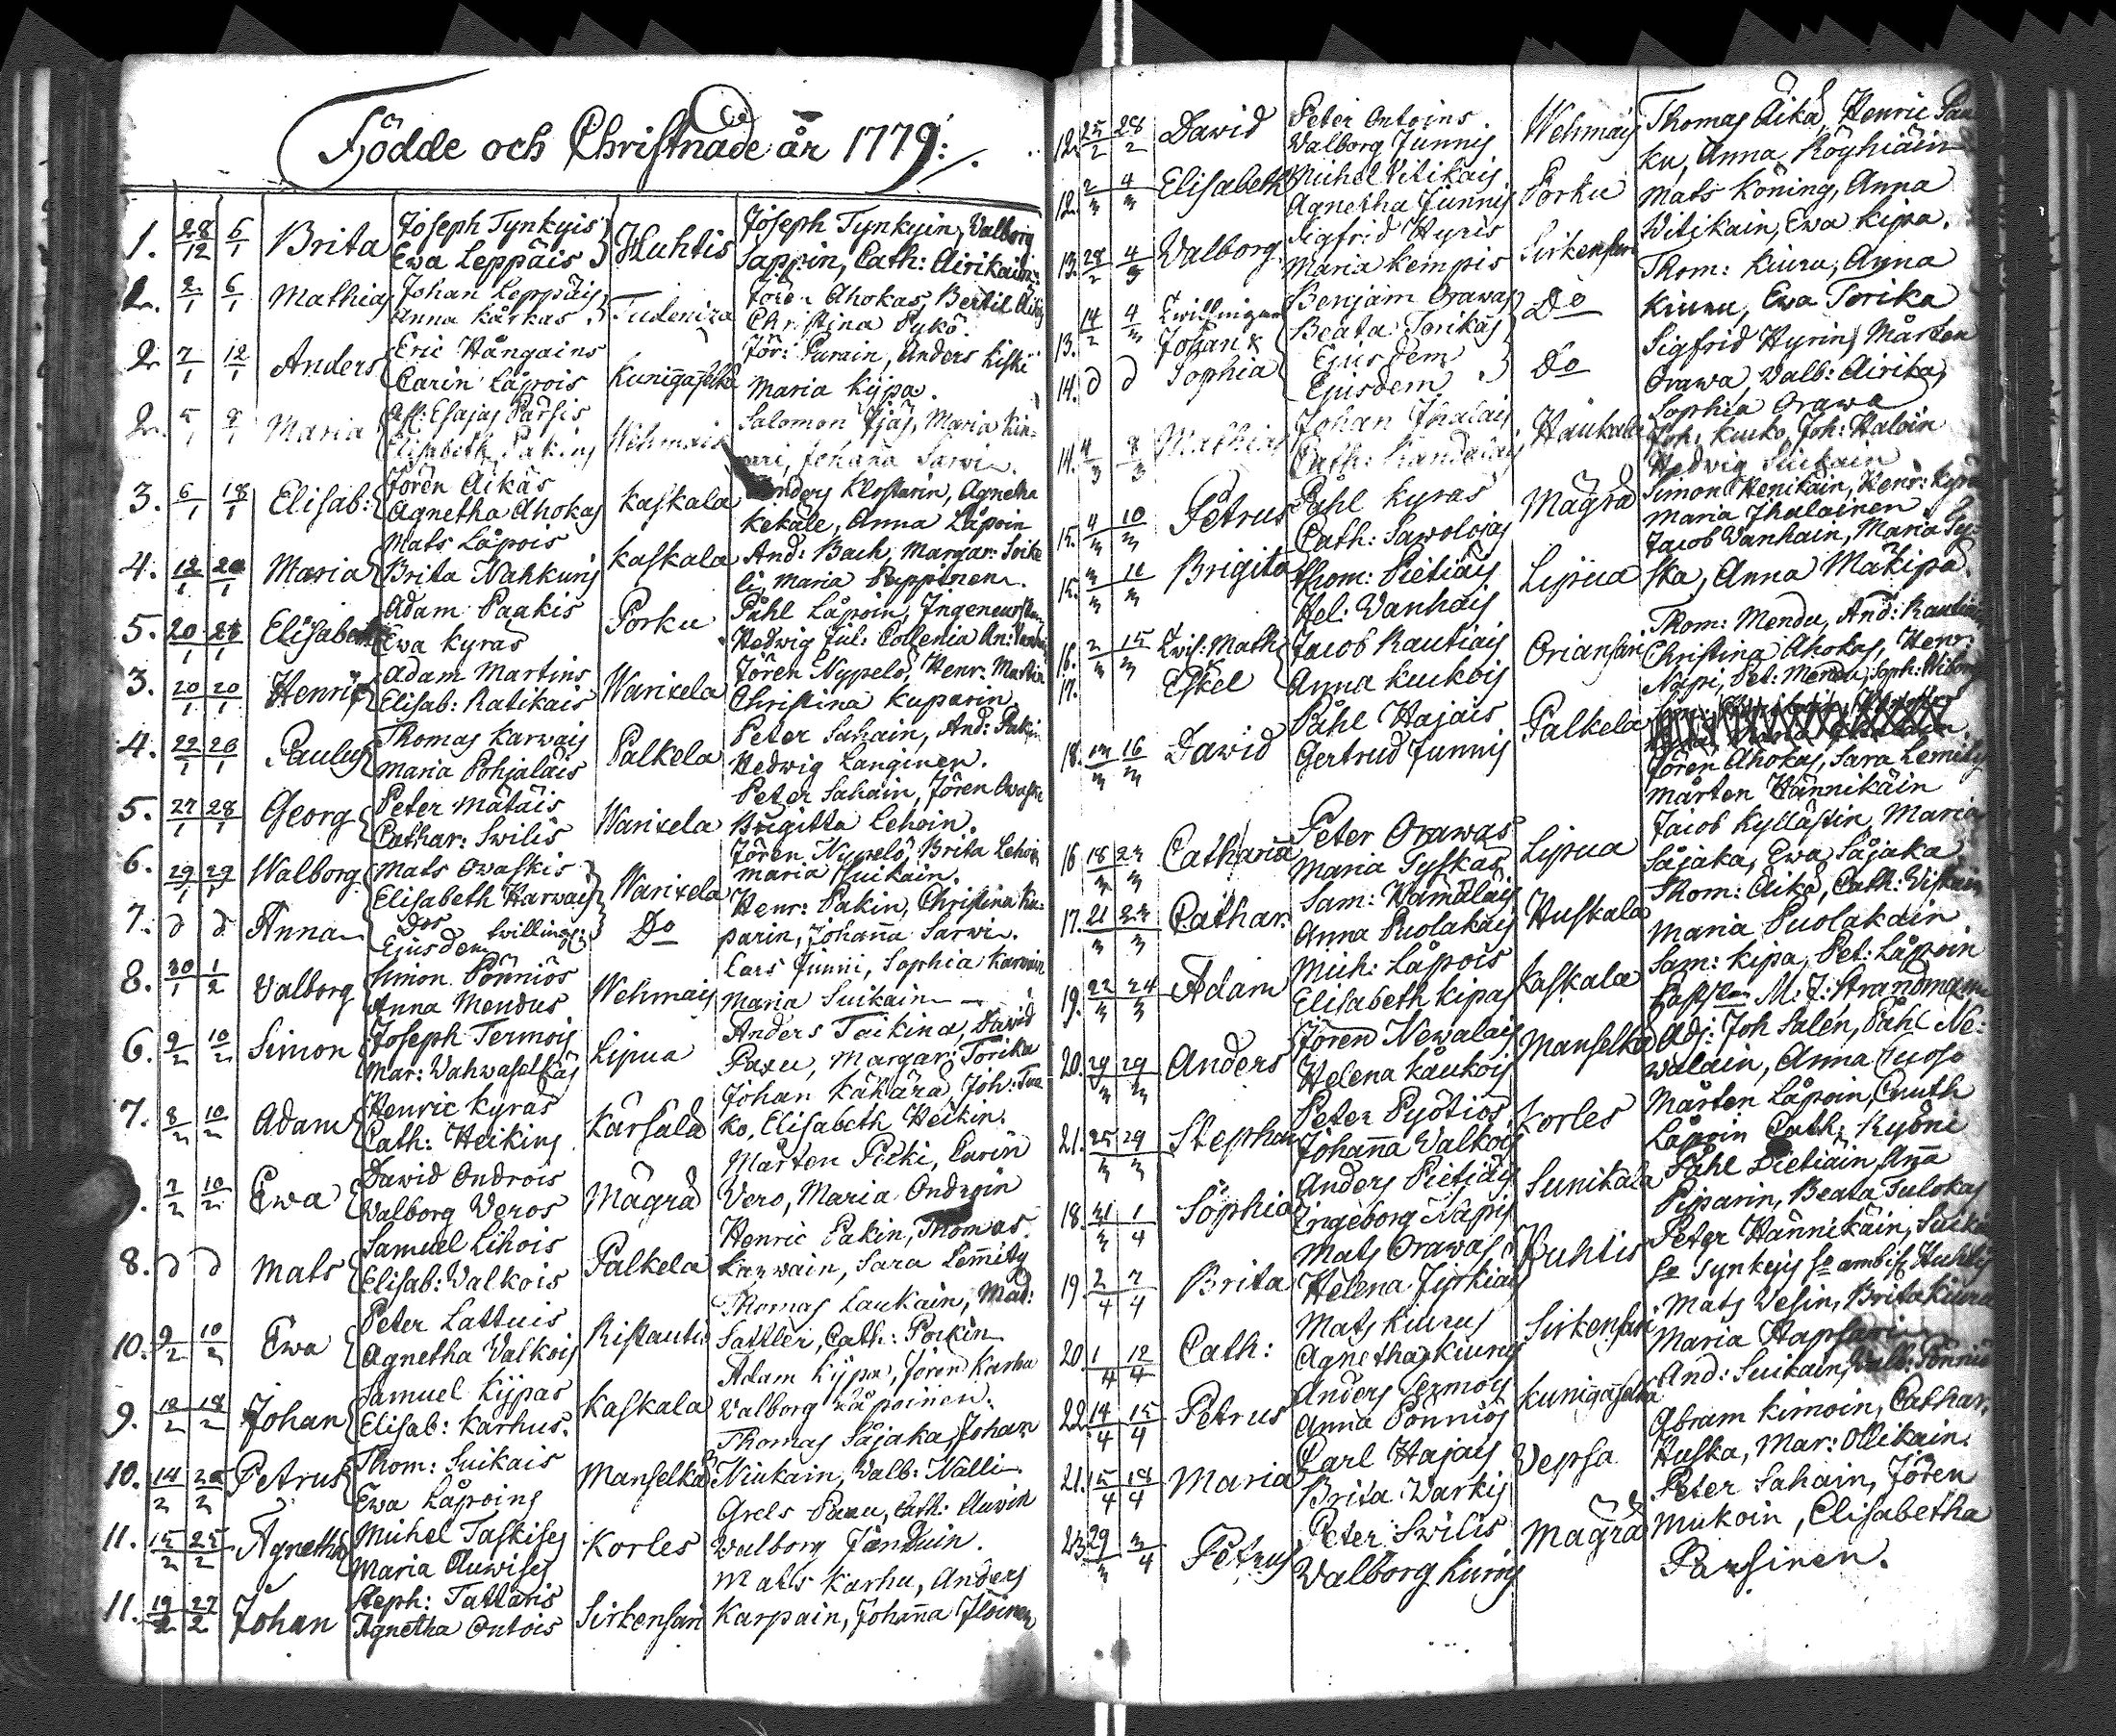 Födde och Christnade år 1779:/.
1. 28/12 6/1 Brita Joseph Tynkyis Ewa Leppäis Huhtis Joseph Tynkyin, Valborg
Sappin, Cath: Airikain
2. 2/1 6/1 Mathias Johan Leppäis Anna Karkas Tudeniza Jören Ahokas, Bertil
Christina Pykö
2 7/1 12/1 Anders Eric Hångains Carin Låpois Kunigaselka Jör: Purain, Anders Liski
Maria Kijpa.
2. 5/1 Maria Esajas Parsis Elisabeth Pakins Wehmais Salomon Ijäs, Maria Kin-
nari, Johaña Sarwi.
3. 6/1 18/1 Elisab: Jören Aikäs Agnetha Ahokas Kaskala Anders Klostarin, Agneta
Kekäle, Anna Låpoin
4. 12/1 20/1 Maria Mats Låpois Brita Nahkuris Kaskala And: Bach, Margar: Soike
li, Maria Pappinen.
5. 20/1 26/1 Elisabeth Adam Paakis Ewa Kyräs Porku Påhl Låpoin,
Hedwig Jul: Pollenia
3. 20/1 20/1 Henric Adam Martins Elisab: Ratikais Warixela Jören Nypelö, Henr: Martin
Christina Kuparin
4. 22/1 26/1 Paulus Thomas Karwais Maria Pohjalais Palkela Peter Sahain, And: Pakin
Hedwig Langinen.
5. 27/1 28/1 Georg Peter Mätäis Cathar: Swilis Warixela Peter Sahain, Jören Owaska
Brigitta Lehoin.
6. 29/1 29/1 Walborg Mats Owaskis Elisabeth Harwais Warixela Jören Nypelö, Brita Lehoin
Maria Suikain.
7. d d Anna Dos Ejusdem twilling: Do Henr: Pakin, Christina Ku-
parin, Johaña Sarwi.
8. 30/1 1/2 Valborg Simon Pönniös Anna Mendus Wehmais Lars Junni, Sophia Karwain
Maria Suikain
6. 9/2 10/2 Simon Joseph Termois Mar: Wahwaselkäs Lipua Anders Taikina, David
Paxu, Margar: Torika
7. 8/2 10/2 Adam Henric Kyräs Cath: Heikins Kärsälä Johan Kähärä, Joh: Tua
ko, Elisabeth Heikin.
7/2 10/2 Ewa Dawid Ondrois Valborg Weros Mägrä Mårten Pieki, Carin
Vero, Maria Ondroin
8. d d Mats Samuel Lihois Elisab: Valkois Palkela Henric Pakin, Thomas
Karwain, Sara Lemmitÿ
10. 9/2 10/2 Ewa Peter Lattuis Agnetha Valkois Ristautio Thomas Laukain, Mad:
Sattler, Cath: Poikin
9. 12/2 18/2 Johan Samuel Kijpas Elisab: Karhus. Kaskala Adam Kijpa, Jören Karhu
Valborg Låpoinen.
10. 14/2 20/2 Petrus Thom: Suikais Ewa Låpoins Manselkä Thomas Säjaka, Johan
Niukain, Walb: Nalli
11. 15/2 25/2 Agnetha Michel Taskises Maria Auwises Korles Grels Paxu, Cath: Auwin
Valborg Janduin.
11. 19/2 27/2 Johan Steph: Tattaris Agnetha Ontois Sirkensari Mats Karhu, Anders
Karpain, Johaña Iloinen
12. 25/2 28/2 Dawid Peter Ontoins Valborg Junnis Wehmais Thomas Aika, Henric Pau
ku, Anna Röyhiäin
12. 2/3 4/3 Elisabeth Michel Vitikais Agnetha Junnis Porku Mats Köning, Anna
Witikain, Ewa Kipa.
13. 28/2 4/3 Valborg Sigfrid Hyris Maria Kempis Sirkensari Thom: Kiuru, Anna
Kiuru, Ewa Torika
13. 14/2 4/3 Twillingar Johan & Benjam Orawas Beata Torikas Do Sigfrid Hyrin, Mårten
14. d d Sophia Ejusdem Ejusdem Do Orawa, Valb: Airika,
Sophia Orawa
14. 4/3 8/3 Mathias Johan Ihalais Cath: Haukala Joh: Kuko, Joh: Haloin
Hedvig Suikain
15. 4/3 10/3 Petrus Påhl Kyräs Cath: Sawolojas Mägrä Simon Henikain, Henr: Kyrä
Maria Ihalainen
15. 3/3 11/3 Brigita Thom: Pietiäis Hel: Vanhais Lipua Jacob Wanhain, Maria Ty-
ska, Anna Mäkipä.
16. 2/3 15/3 Twil: Math: & Jacob Rautiais Oriansari Thom: Mendu, And: Rautiain
Christina Ahokas, Henr:
17. Eskel Anna Kuckois Näpi, Pet: Mendu, Soph:
18. 13/3 16/3 Dawid Påhl Hajais Gertrud Junnis Palkela
Jören Ahokas, Sara Lemitÿ
Mårten Hännikäin
16 18/3 23/3 Catharia Peter Orawas Maria Tyskas Lipua Jacob Kyllästin, Maria
Säjaka, Ewa Säjaka
17. 21/3 23/3 Cathar. Sam: Wämäläis Anna Puolakas Huskala Thom: Aika, Cath: Wiskain
Maria Puolakain
19. 22/3 24/3 Adam Mich: Låpois Elisabeth Kipas Kaskala Sam: Kipa, Pet: Låpoin
M: J: Strandman
20. 29/3 29/3 Anders Jören Newalais Helena Kaukois Manselka Adj: Joh Salen, Påhl Ne-
walain, Anna Tuoso
21. 25/3 29/3 Stephan Peter Pyötiös Johaña Walkois Korles Mårten Låpoin, Cnuth
Låpoin Cath: Kyöni
18. 31/3 1/4 Sophia Anders Pietiäis Ingeborg Näpis Sunikala Påhl Pietiäin, Aña
Piparin, Beata Tulokas
19 2/4 7/4 Brita Mats Orawas Helena Jyskiäis Huhtis Peter Hännikäin, Suika
Tynkyis ambis Huhtis
20 1/4 12/4 Cath: Mats Kiurus Agnetha Kiurus Sirkensari Mats Vesin, Brita Kiuru
Maria Hapsari
22 14/4 15/4 Petrus Anders Termois Anna Pönniös Kunigaselka And: Suikain, Walb: Pönniö
21. 15/4 18/4 Maria Carl Hajais Brita Warkis Vepsa Abram Kimoin, Cathar.
Huska, Mar: Ollikain.
23 29/3 3/4 Petrus Peter Swilis Valborg Kuris Mägrä Peter Sahain, Jören
Mukoin, Elisabetha
Parsinen.